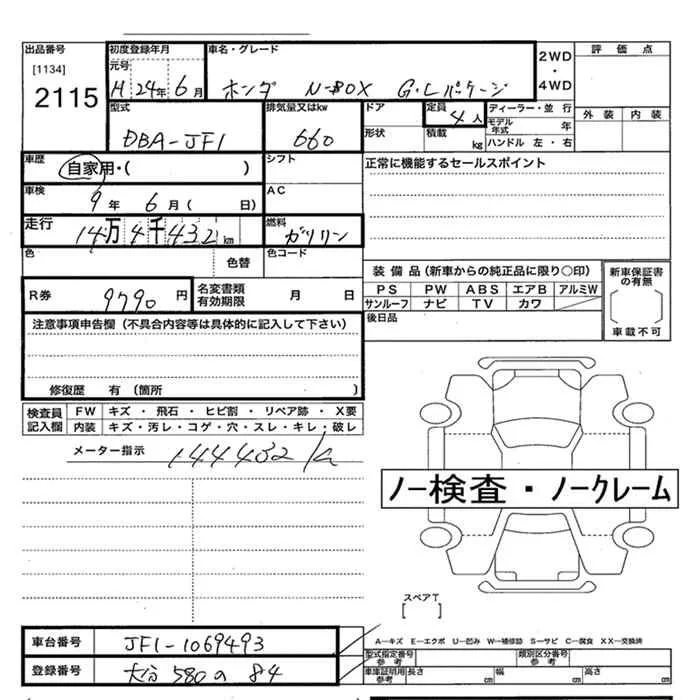 出品番号 初度登録年月 車名・グレード 2WD・4WD 評価点
[1134] 元号
2115 H 24年 6月 ホンダ N-BOX G・Lパッケージ
型式 排気量又はkw ドア 定員 ディーラー・並行 外装 内装
DBA-JF1 660 4人 モデル年式 年
形状 積載 kg ハンドル 左・右
車歴 自家用・( ) シフト 正常に機能するセールスポイント
車検 9年 6月( 日) AC
走行 14万4千432km 燃料 ガソリン
色 色替 色コード
装備品(新車からの純正品に限り○印) 新車保証書の有無
R券 9790円 名変書類有効期限 月 日
PS PW ABS エアB アルミW
サンルーフ ナビ TV カワ
後日品 車載不可
注意事項申告欄(不具合内容等は具体的に記入して下さい)
修復歴 有(箇所 )
検査員記入欄 FW キズ・飛石・ヒビ割・リペア跡・X要
内装 キズ・汚レ・コゲ・穴・スレ・キレ・破レ
メーター指示 144432 k
ノー検査・ノークレーム
スペアT
[ ]
車台番号 JF1-1069493
登録番号 大分 580 84
A―キズ E―エクボ U―凹み W―補修跡 S―サビ C―腐食 XX―交換済
型式指定番号 参考 類別区分番号 参考
車庫証明用 参考 長さ cm 幅 cm 高さ cm